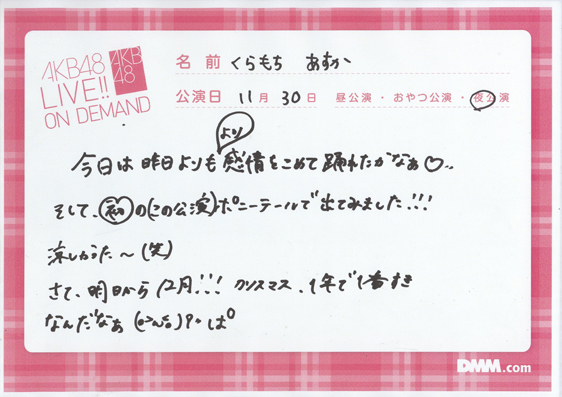 AKB48
LIVE!!
ON DEMAND
AKB
48
名前 くらもち あすか
公演日 11月 30日 昼公演・おやつ公演・夜公演
より
今日は昨日よりも感情をこめて踊れたかなぁ♡..
そして、初の(この公演)ポニーテールで出てみました!!!
涼しかった〜(笑)
さて、明日から12月!!! クリスマス、1年で1番すき
なんだなぁ
DMM.com